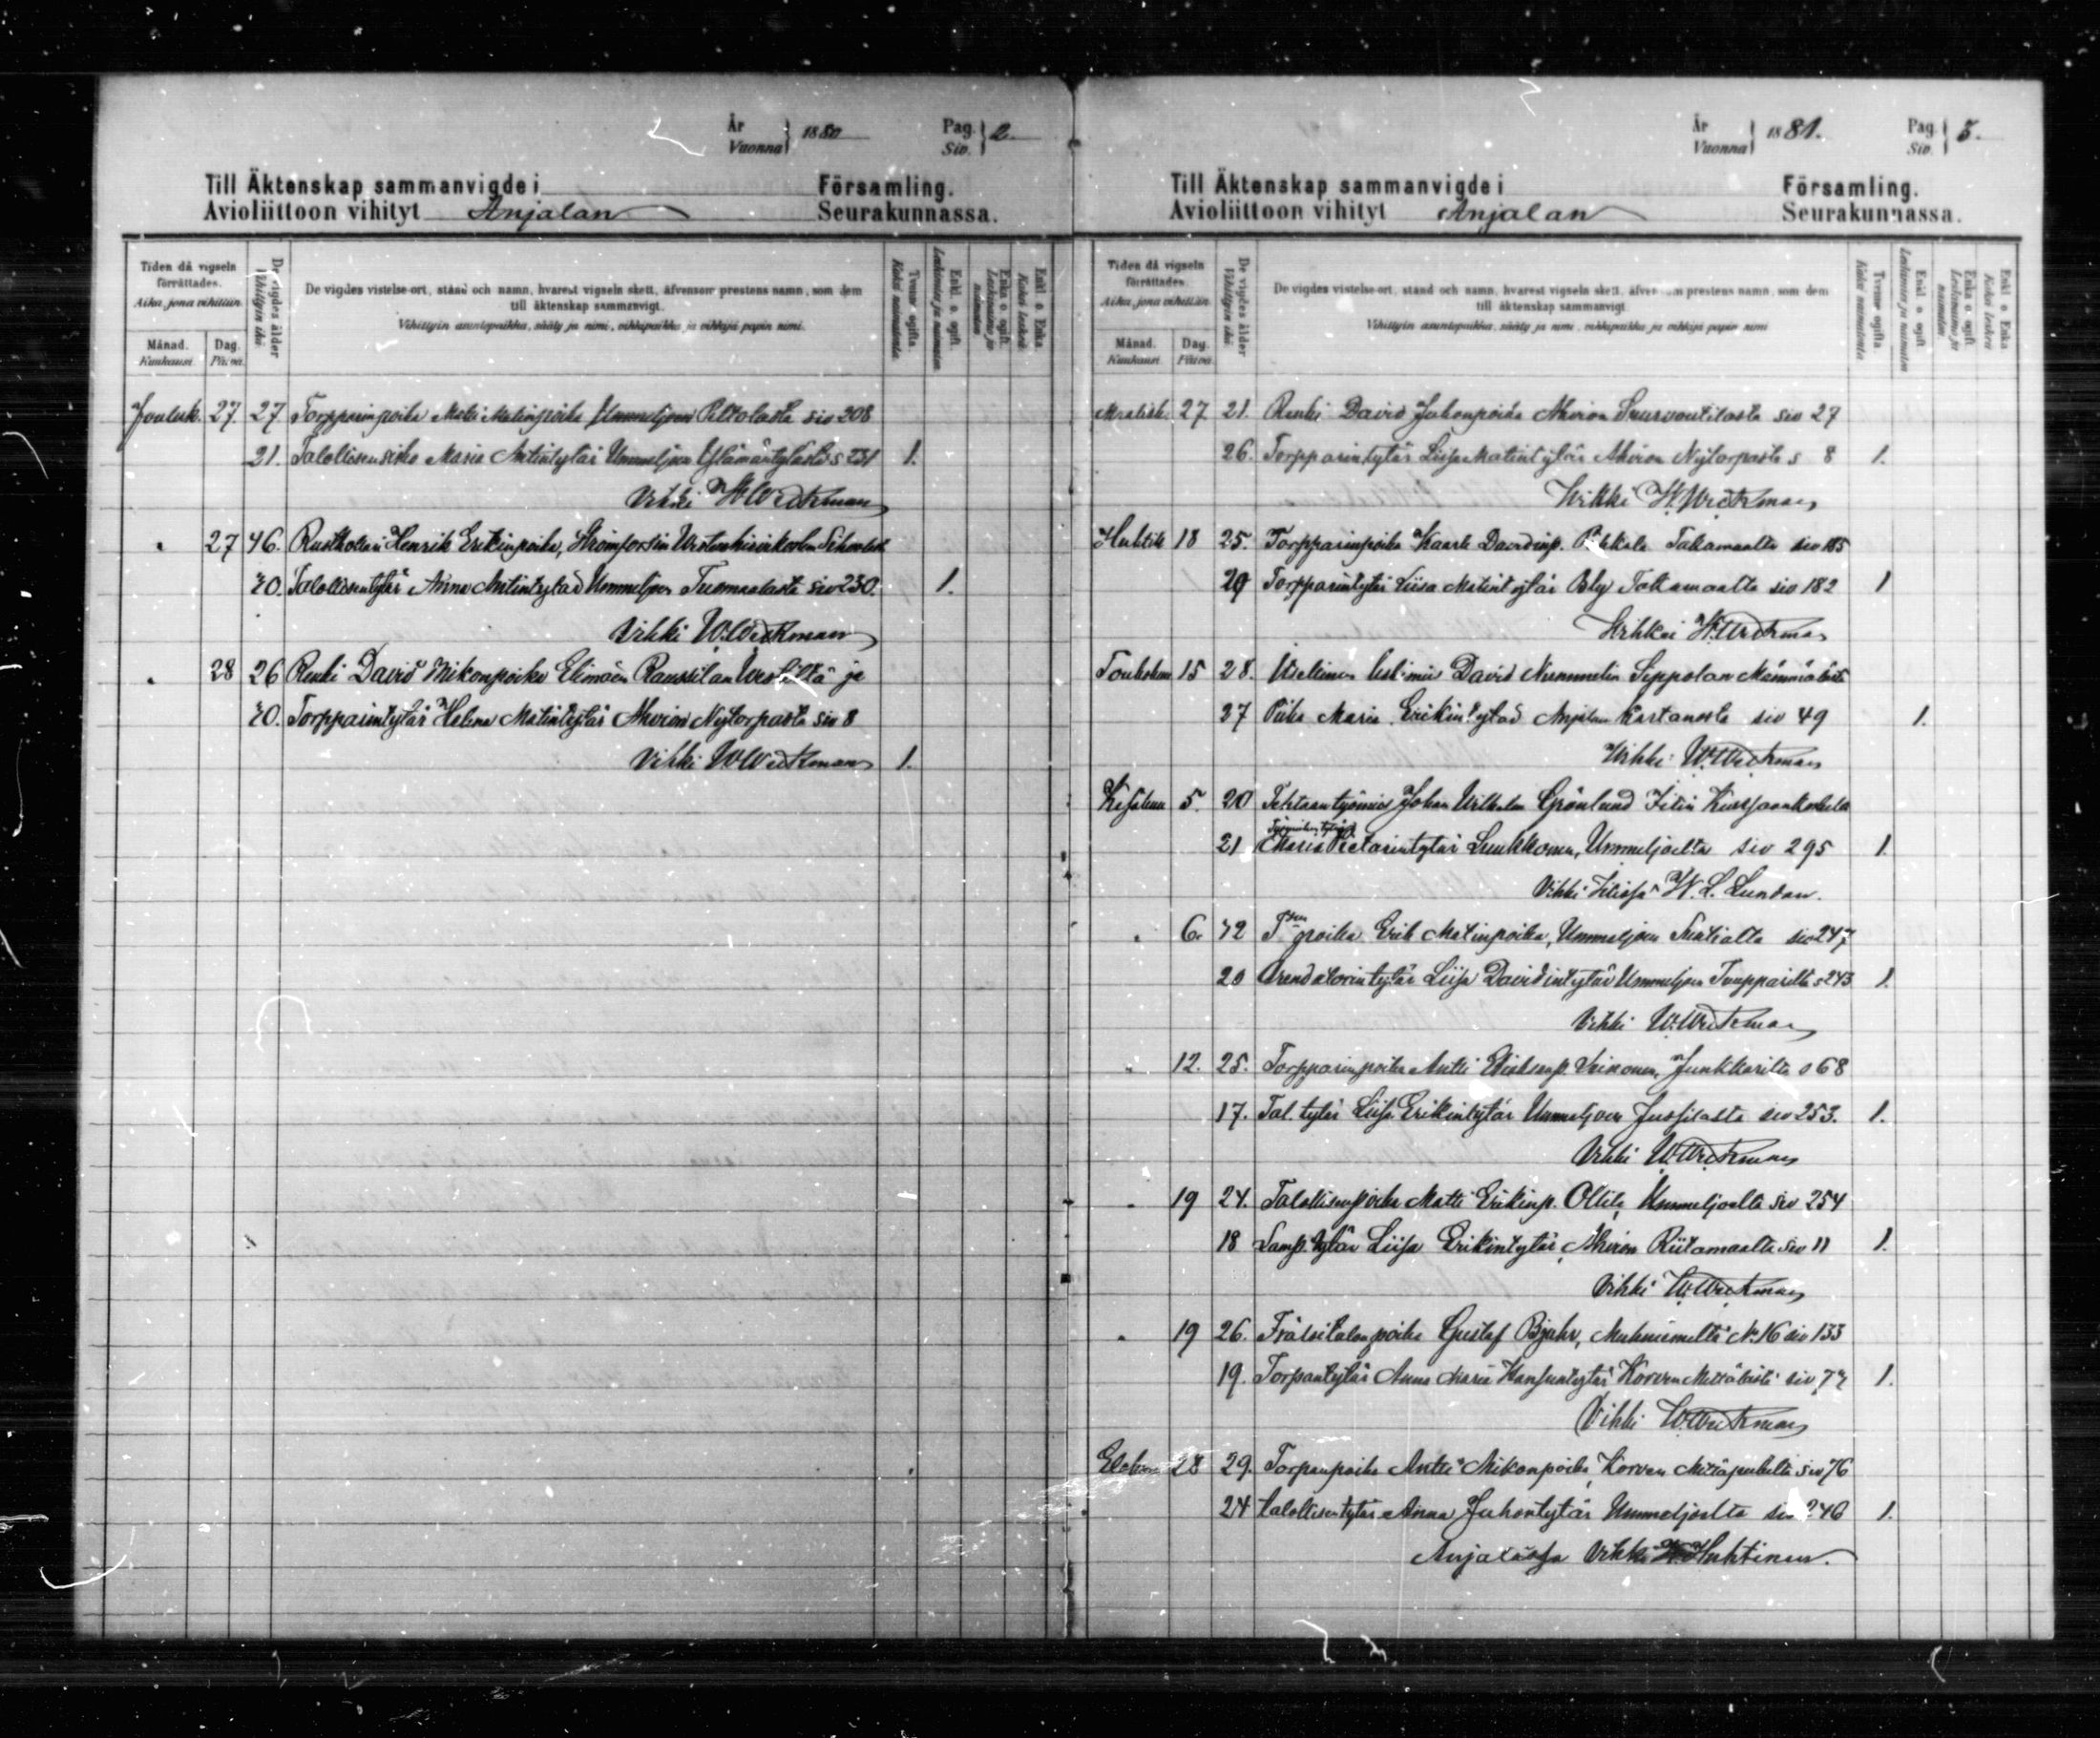 År
Vuonna } 1880
Pag.
Siv. } 2.
Till Äktenskap sammanvigde i Församling.
Avioliittoon vihityt Anjalan Seurakunnassa.
Tiden då vigseln förrättades.
Aika, jona vihittiin.
Månad.
Kuukausi.
Dag.
Päivä.
De vigdes ålder
Vihittyin ikä.
De vigdes vistelse-ort, stånd och namn, hvarest vigseln skett, äfvensom prestens namn, som dem
till äktenskap sammanvigt.
Vihittyin asuntopaikka, sääty ja nimi, vihkipaikka ja vihkijä papin nimi.
Tvenne ogifta
Kaksi naimatonta.
Enkl. o. ogift.
Leskimies ja naimaton.
Enka o. ogift.
Leskivaimo ja naimaton
Enkl. o. Enka
Kaksi leskeä
Jouluk. 27. 27 Torpparinpoika Matti Matinpoika Ummeljoen Peltolasta siv 208
21. Talollisen sisko Maria Antintytär Ummeljoen s 231 1.
Vihki W Weckman
" 27 46. Rusthollari Henrik Erkinpoika, Strömforsin
20. Talollisentytär Anna Antintytär Ummeljoen Tuomaalasta siv 230. 1.
Vihki W. Weckman
" 28 26 Renki David Mikonpoika Elimäen Raussilan ja
20. Torpparintytär Helena Matintytär Ahvion Nytorpasta siv 8
Vihki W Weckman 1.
År
Vuonna } 1881.
Pag.
Siv. } 5.
Till Äktenskap sammanvigde i Församling.
Avioliittoon vihityt Anjalan Seurakunnassa.
Tiden då vigseln förrättades.
Aika, jona vihittiin.
Månad.
Kuukausi.
Dag.
Päivä.
De vigdes ålder
Vihittyin ikä.
De vigdes vistelse-ort, stånd och namn, hvarest vigseln skett, äfvensom prestens namn, som dem
till äktenskap sammanvigt.
Vihittyin asuntopaikka, sääty ja nimi, vihkipaikka ja vihkijä papin nimi
Tvenne ogifta
Kaksi naimatonta.
Enkl. o. ogift.
Leskimies ja naimaton
Enka o. ogift.
Leskivaimo ja naimaton
Enkl. o Enka
Kaksi leskeä
Maalisk. 27. 21. Renki David Juhonpoika Ahvion siv 27
26. Torpparintytär Liisa Matintytär Ahvion Nytorpasta s 8 1.
Wihki W. Weckman
Huhtik 18 25. Torpparinpoika Kaarle Davidinp. Takamaalta siv 185
29 Torpparintytär Liisa Matintytär Bly Takamaalta siv 182 1
Wihki W. Weckman
Toukokuu 15 28. Itsellinen leskimies David Nummelin Seppolan
27 Piika Maria Erikintytär Anjalan Kartanosta siv 49 1.
Wihki W. Weckman
Kesäkuu 5. 20 Tehtaantyömies Johan Wilhelm Grönlund Iitin
21 Maria Luukkonen, Ummeljoelta siv 295 1
Vihki Iitissä W. L. Lundan.
" 6. 22 poika Erik Matinpoika, Ummeljoen siv 247
20 Arendatorintytär Liisa Davidintytär Ummeljoen s 243 1.
Vihki W. Weckman
" 12. 25. Torpparinpoika Antti Junkkarilta s 68
17. Tal. tytär Liisa Erikintytär Ummeljoen Jussilasta siv 253. 1.
Vihki W. Weckman
" 19 24. Talollisenpoika Matti Erikinp. Ollila Ummeljoelta siv 254
18 Lamp. tytär Liisa Erikintytär, Ahvion Riitamaalta siv 11 1.
Vihki W. Weckman
" 19 26. Frälsitalonpoika Gustaf Bjuhr, Muhniemeltä No 16 siv 133
19. Torpantytär Anna Maria Korven siv 72 1.
Vihki W. Weckman
Elokuu 28 29. Torpanpoika Antti Mikonpoika Korven siv 76
24 talollisentytär Anna Juhontytär Ummeljoelta siv 246 1.
Anjalassa Vihki Huhtinen.